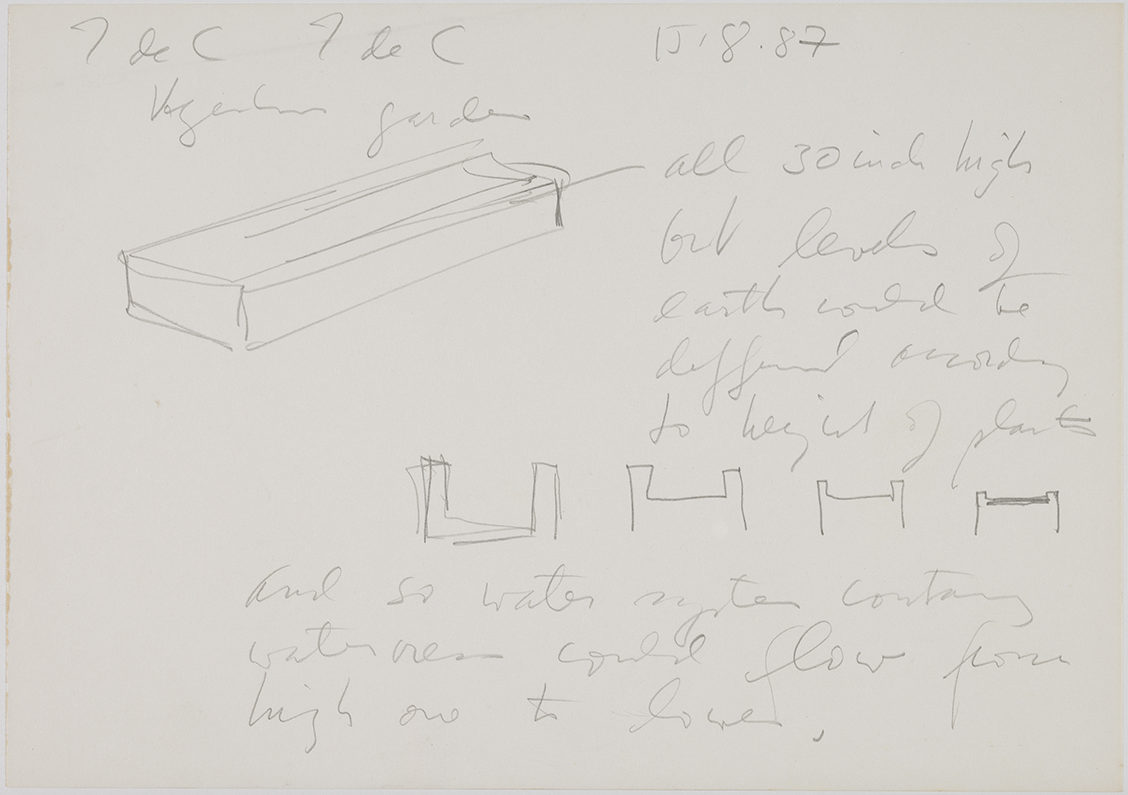 7 de C 7 de C 15.8.87
garden
all 30 inch high
but levels of
earth could be
different according
to height of plants
and so water system containing
watercress could flow from
high one to lower.